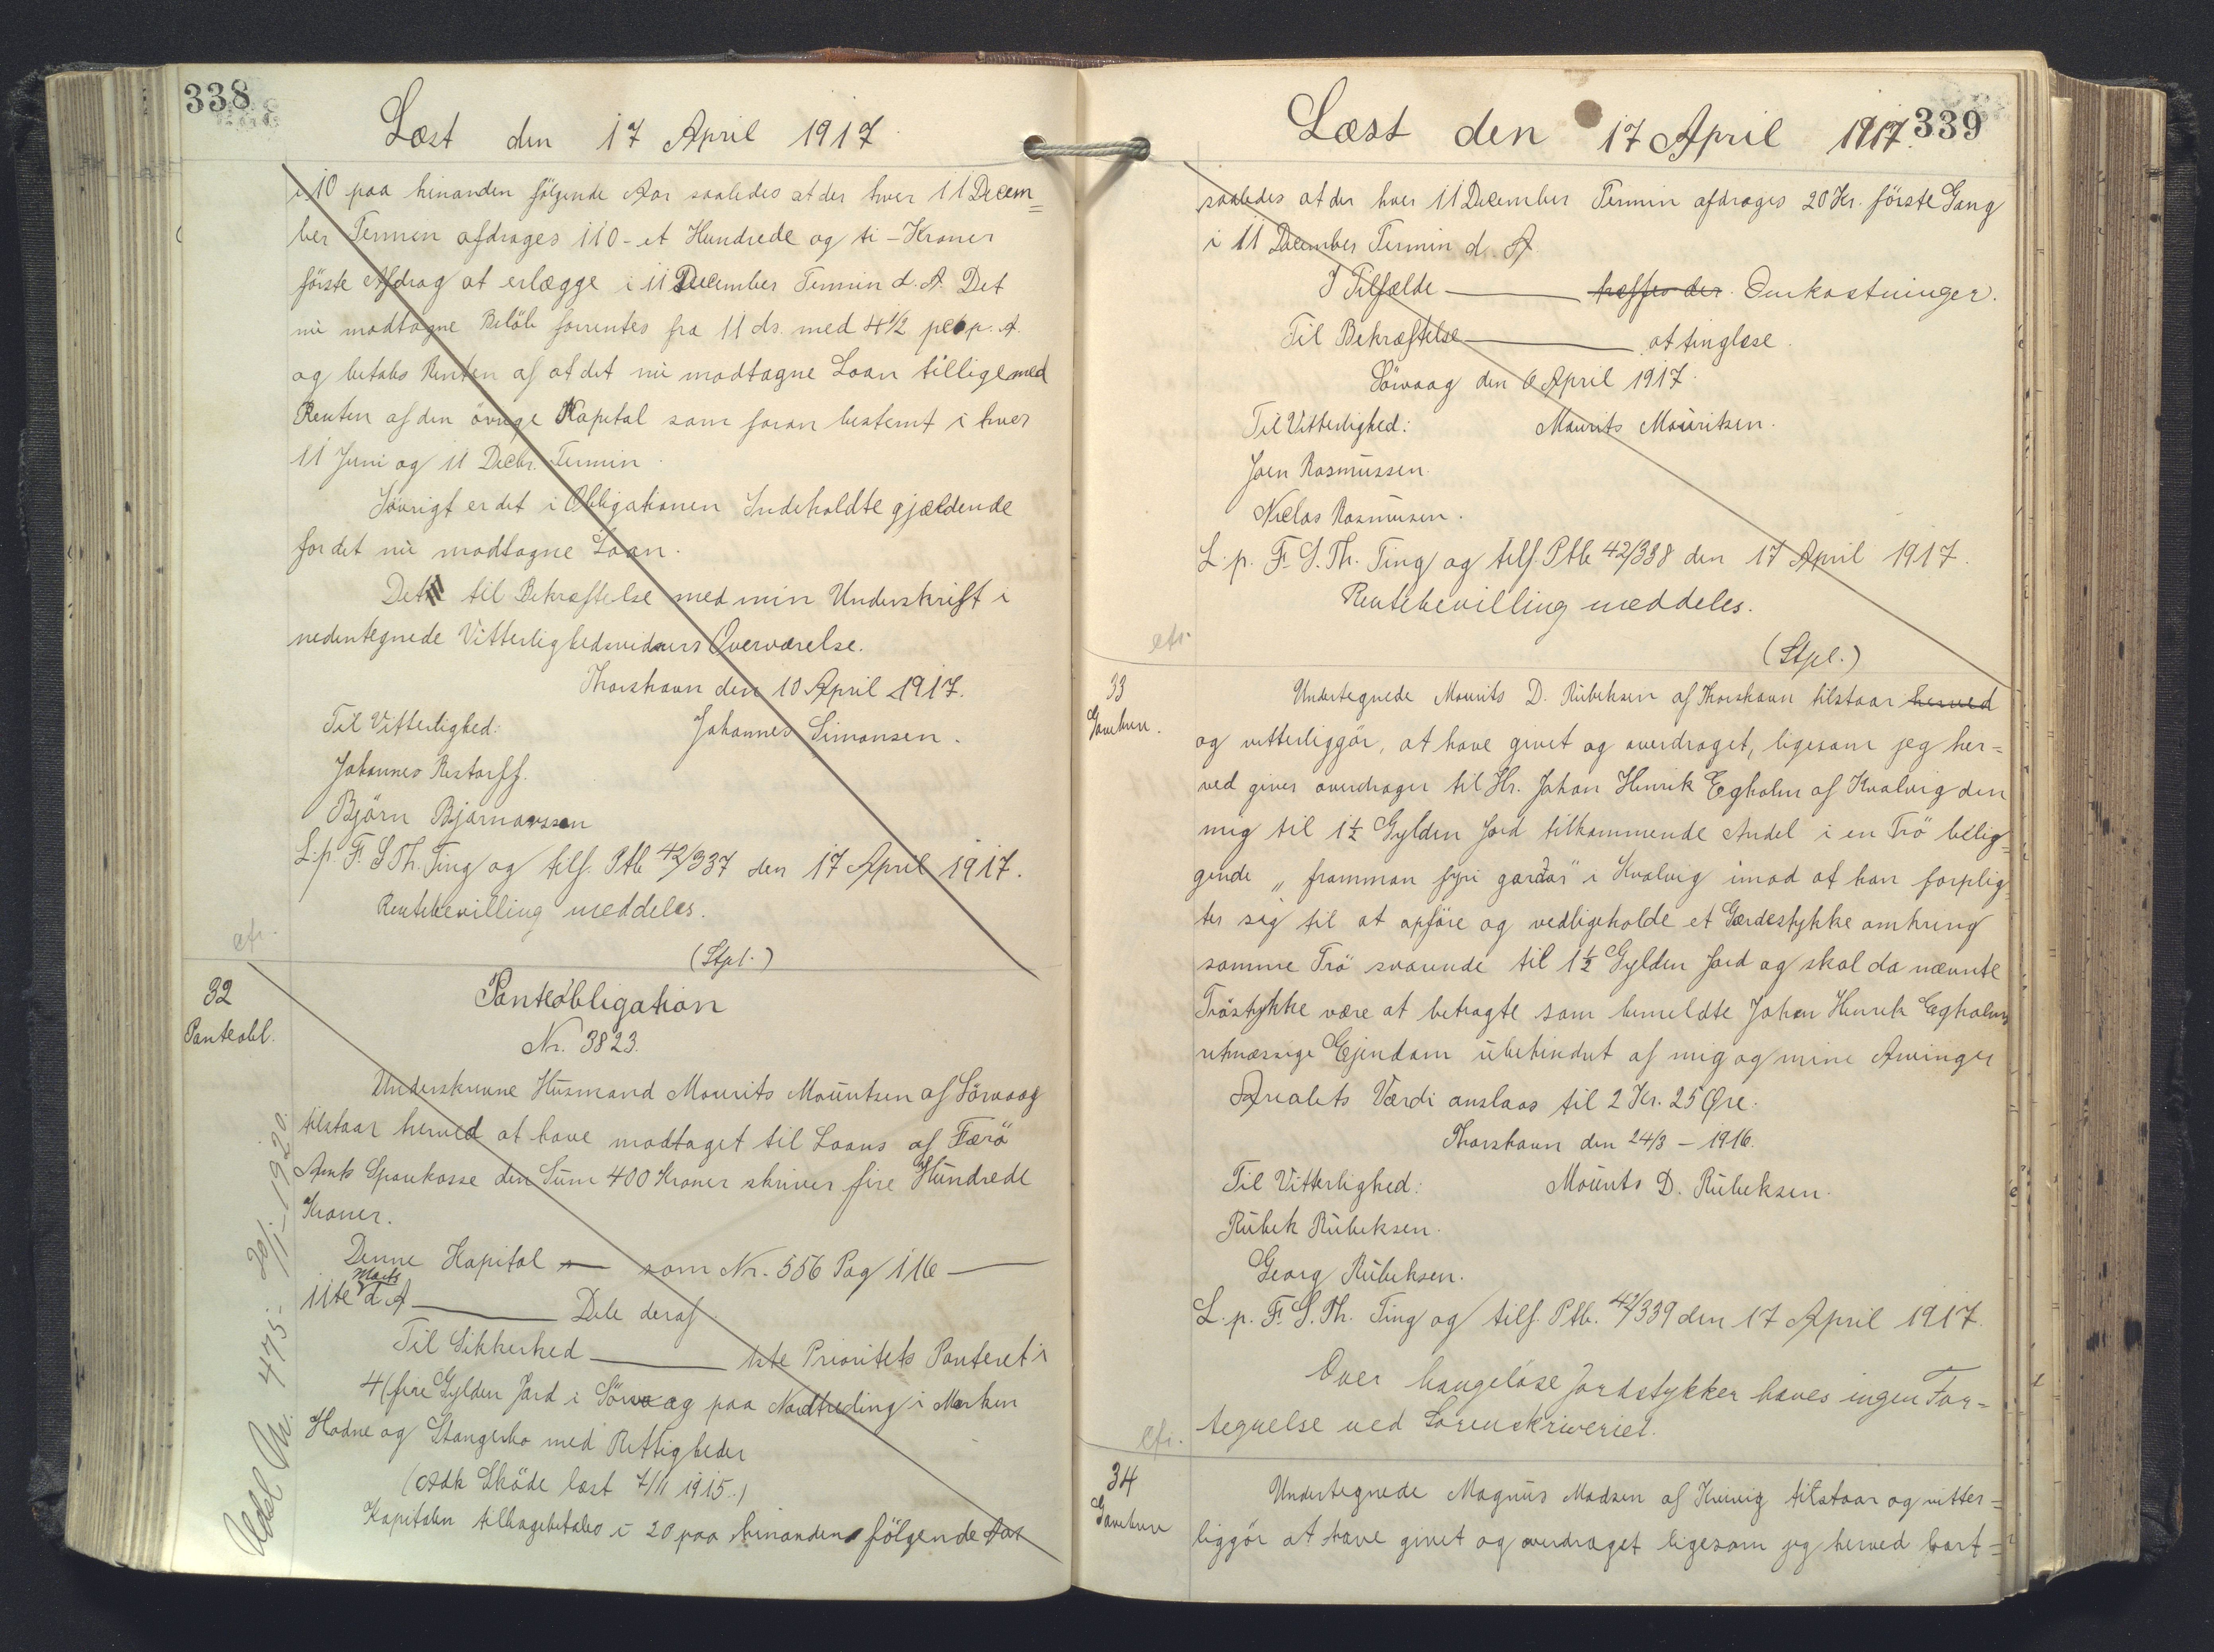 338
Læst den 17 April 1917
i 10 paa hinanden følgende Aar saaledes at der hver 11 Decem=
ber Termin afdrages 110 - et Hundrede og ti - Kroner
første Afdrag at erlægge i 11 December Termin d. A. Det
nu modtagne Beløb forrentes fra 11 ds. med 4½ pct p. A.
og betales Renten af at det nu modtagne Laan tilligemed
Renten af den øvrige Kapital som foran bestemt i hver
11 Juni og 11 Decbr. Termin.
Iøvrigt er det i Obligationen Indeholdte gjældende
for det nu modtagne Laan.
Det til Bekræftelse med min Underskrift i
nedentegnede Vitterlighedsvidners Overværelse.
Thorshavn den 10 April 1917.
Til Vitterlighed: Johannes Simonsen.
Johannes Restorff.
Björn Bjarnarsson
L. p. F. S. Th. Ting og tilf. Ptb 42/337 den 17 April 1917.
Rentebevilling meddeles.
(Stpl.)
cfr.
32
Panteobl.
Panteobligation
Nr. 3823.
Underskrevne Husmand Mourits Mouritsen af Sörvaag
tilstaar herved at have modtaget til Laans af Færö
Amts Sparekasse den Sum 400 Kroner skriver fire Hundrede
Kroner.
Denne Kapital — som Nr. 556 Pag 116 —
11te Marts d A — Dele deraf.
Til Sikkerhed — 1ste Prioritets Panteret i
4 (fire Gylden Jord i Sörvaag paa Nordtreding i Marken
Hadne og Stangerbo med Rettigheder
(Adk Skøde læst 7/11 1915.)
Kapitalen tilbagebetales i 20 paa hinanden følgende Aar
Udsl Nr. 475. 20/1 1920.
339
Læst den 17 April 1917.
saaledes at der hver 11 December Termin afdrages 20 Kr. første Gang
i 11 December Termin d. A.
I Tilfælde — træffes der Omkostninger.
Til Bekræftelse — at tinglæse.
Sörvaag den 6 April 1917.
Til Vitterlighed: Mourits Mouritsen.
Joen Rasmussen.
Niclas Rasmusen.
L. p. F. S. Th. Ting og tilf. Ptb 42/338 den 17 April 1917.
Rentebevilling meddeles.
(Stpl.)
cfr.
33
Gavebrev.
Undertegnede Mourits D. Rubeksen af Thorshavn tilstaar herved
og vitterliggör, at have givet og overdraget, ligesom jeg her=
ved giver overdrager til Hr. Johan Henrik Egholm af Kvalvig den
mig til 1½ Gylden Jord tilkommende Andel i en Trö belig=
gende „framman fyri gardar" i Kvalvig imod at han forplig=
ter sig til at opføre og vedligeholde et Gærdestykke omkring
samme Trö svarende til 1½ Gylden Jord og skal da nævnte
Tröstykke være at betragte som bemeldte Johan Henrik Egholms
retmæssige Ejendom ubehindret af mig og mine Arvinger
Arealets Værdi anslaas til 2 Kr. 25 Øre.
Thorshavn den 24/3 - 1916.
Til Vitterlighed: Mourits D. Rubeksen.
Rubek Rubeksen.
Georg Rubeksen.
L. p. F. S. Th. Ting og tilf. Ptb. 42/339 den 17 April 1917.
Over haugeløse Jordstykker haves ingen For=
tegnelse ved Sorenskriveriet.
cfr.
34
Gavebrev
Undertegnede Magnus Madsen af Kvivig tilstaar og vitter=
liggör at have givet og overdraget ligesom jeg herved bort=